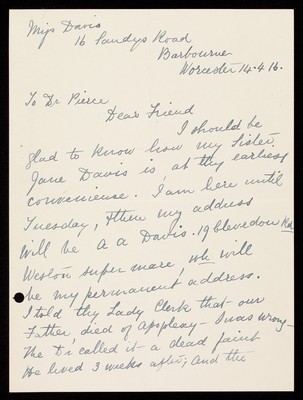 Miss Davis
16 Sandys Road
Barbourne
Worcester 14.4.16.
To Dr Pierce
Dear Friend
I should be
glad to know how my Sister
Jane Davis is, at thy earliest
convenience. I am here until
Tuesday, then my address
will be A A Davis. 19 Clevedon Rd
Weston super mare, wh will
be my permanent address.
I told thy Lady Clerk that our
Father, died of Apoplexy - I was wrong -
The Dr called it a dead faint
He lived 3 weeks after; and the